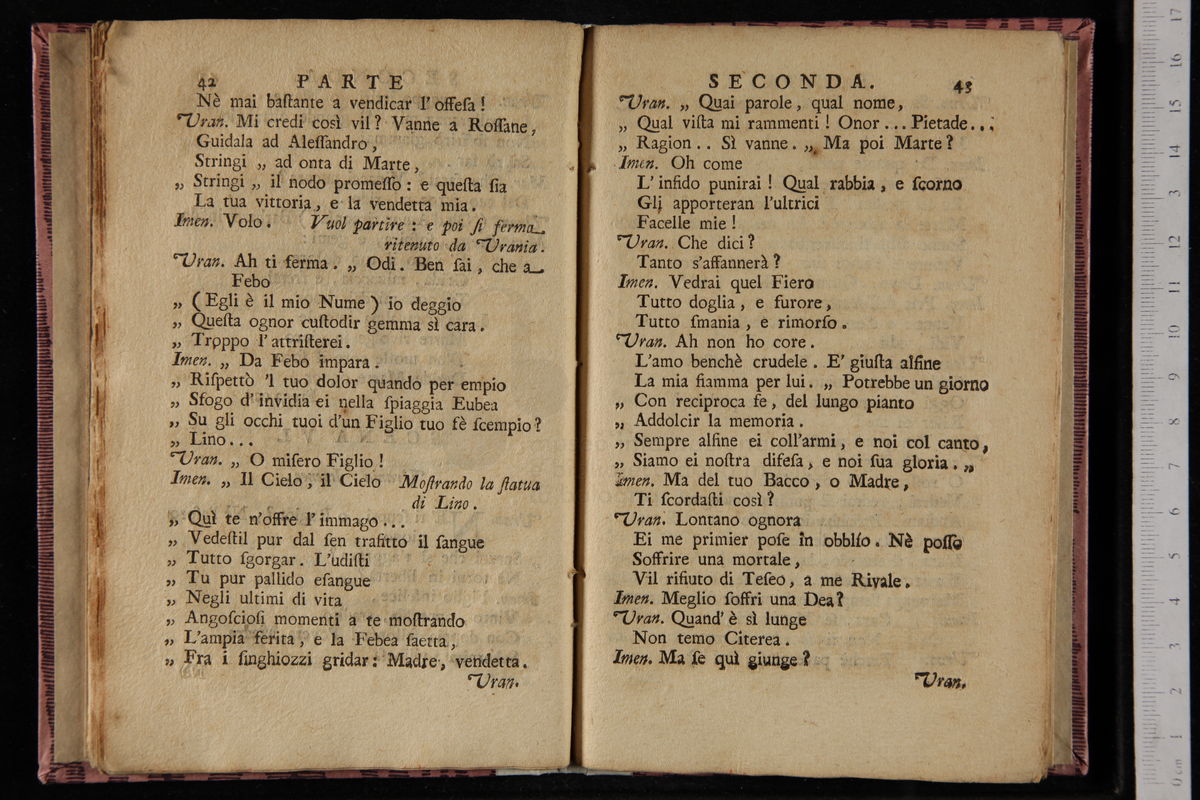 42 PARTE
Nè mai baſtante a vendicar l'offeſa!
Vran. Mi credi così vil? Vanne a Roſſane,
Guidala ad Aleſſandro,
Stringi „ ad onta di Marte,
„ Stringi „ il nodo promeſſo: e queſta ſia
La tua vittoria, e la vendetta mia.
Imen. Volo. Vuol partire: e poi ſi ferma
ritenuto da Vrania.
Vran. Ah ti ferma. „ Odi. Ben ſai, che a
Febo
„ (Egli è il mio Nume) io deggio
„ Queſta ognor cuſtodir gemma sì cara.
„ Troppo l'attriſterei.
Imen. „ Da Febo impara.
„ Riſpettò 'l tuo dolor quando per empio
„ Sfogo d'invidia ei nella ſpiaggia Eubea
„ Su gli occhi tuoi d'un Figlio tuo fè ſcempio?
„ Lino...
Vran. „ O miſero Figlio!
Imen. „ Il Cielo, il Cielo Moſtrando la ſtatua
di Lino.
„ Quì te n'offre l'immago...
„ Vedeſtil pur dal ſen trafitto il ſangue
„ Tutto ſgorgar. L'udiſti
„ Tu pur pallido eſangue
„ Negli ultimi di vita
„ Angoſcioſi momenti a te moſtrando
„ L'ampia ferita, e la Febea ſaetta,
„ Fra i ſinghiozzi gridar: Madre, vendetta.
Vran.
SECONDA. 43
Vran. „ Quai parole, qual nome,
„ Qual viſta mi rammenti! Onor... Pietade...
„ Ragion.. Sì vanne. „ Ma poi Marte?
Imen. Oh come
L'infido punirai! Qual rabbia, e ſcorno
Gli apporteran l'ultrici
Facelle mie!
Vran. Che dici?
Tanto s'affannerà?
Imen. Vedrai quel Fiero
Tutto doglia, e furore,
Tutto ſmania, e rimorſo.
Vran. Ah non ho core.
L'amo benchè crudele. E' giuſta alfine
La mia fiamma per lui. „ Potrebbe un giorno
„ Con reciproca fe, del lungo pianto
„ Addolcir la memoria.
„ Sempre alfine ei coll'armi, e noi col canto,
„ Siamo ei noſtra difeſa, e noi ſua gloria. „
Imen. Ma del tuo Bacco, o Madre,
Ti ſcordaſti così?
Vran. Lontano ognora
Ei me primier poſe in obblío. Nè poſſo
Soffrire una mortale,
Vil rifiuto di Teſeo, a me Rivale.
Imen. Meglio ſoffri una Dea?
Vran. Quand' è sì lunge
Non temo Citerea.
Imen. Ma ſe quì giunge?
Vran.